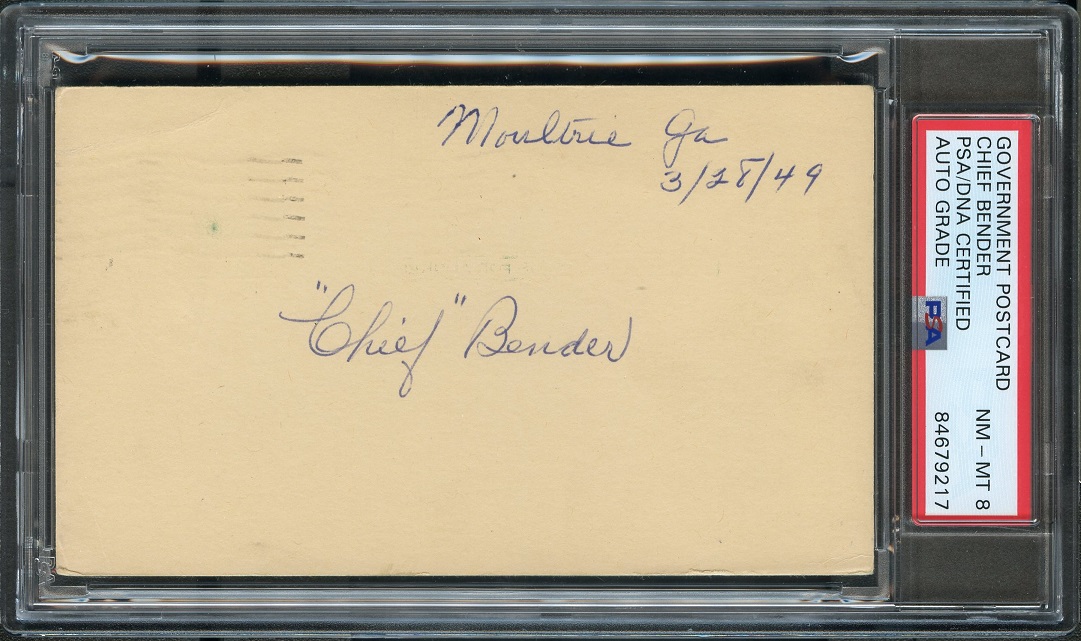 Moultrie Ga
3/28/49
"Chief" Bender
GOVERNMENT POSTCARD
CHIEF BENDER NM – MT 8
PSA/DNA CERTIFIED
AUTO GRADE 84679217
PSA